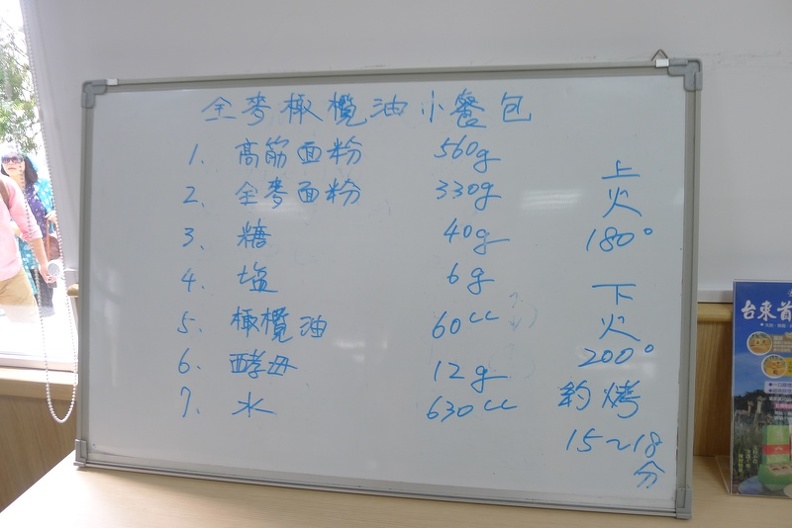 全麥橄欖油小餐包
1. 高筋面粉 560g
2. 全麥面粉 330g
3. 糖 40g
4. 塩 6g
5. 橄欖油 60cc
6. 酵母 12g
7. 水 630cc
上
火
180°
下
火
200°
約烤
15~18
分
台東首